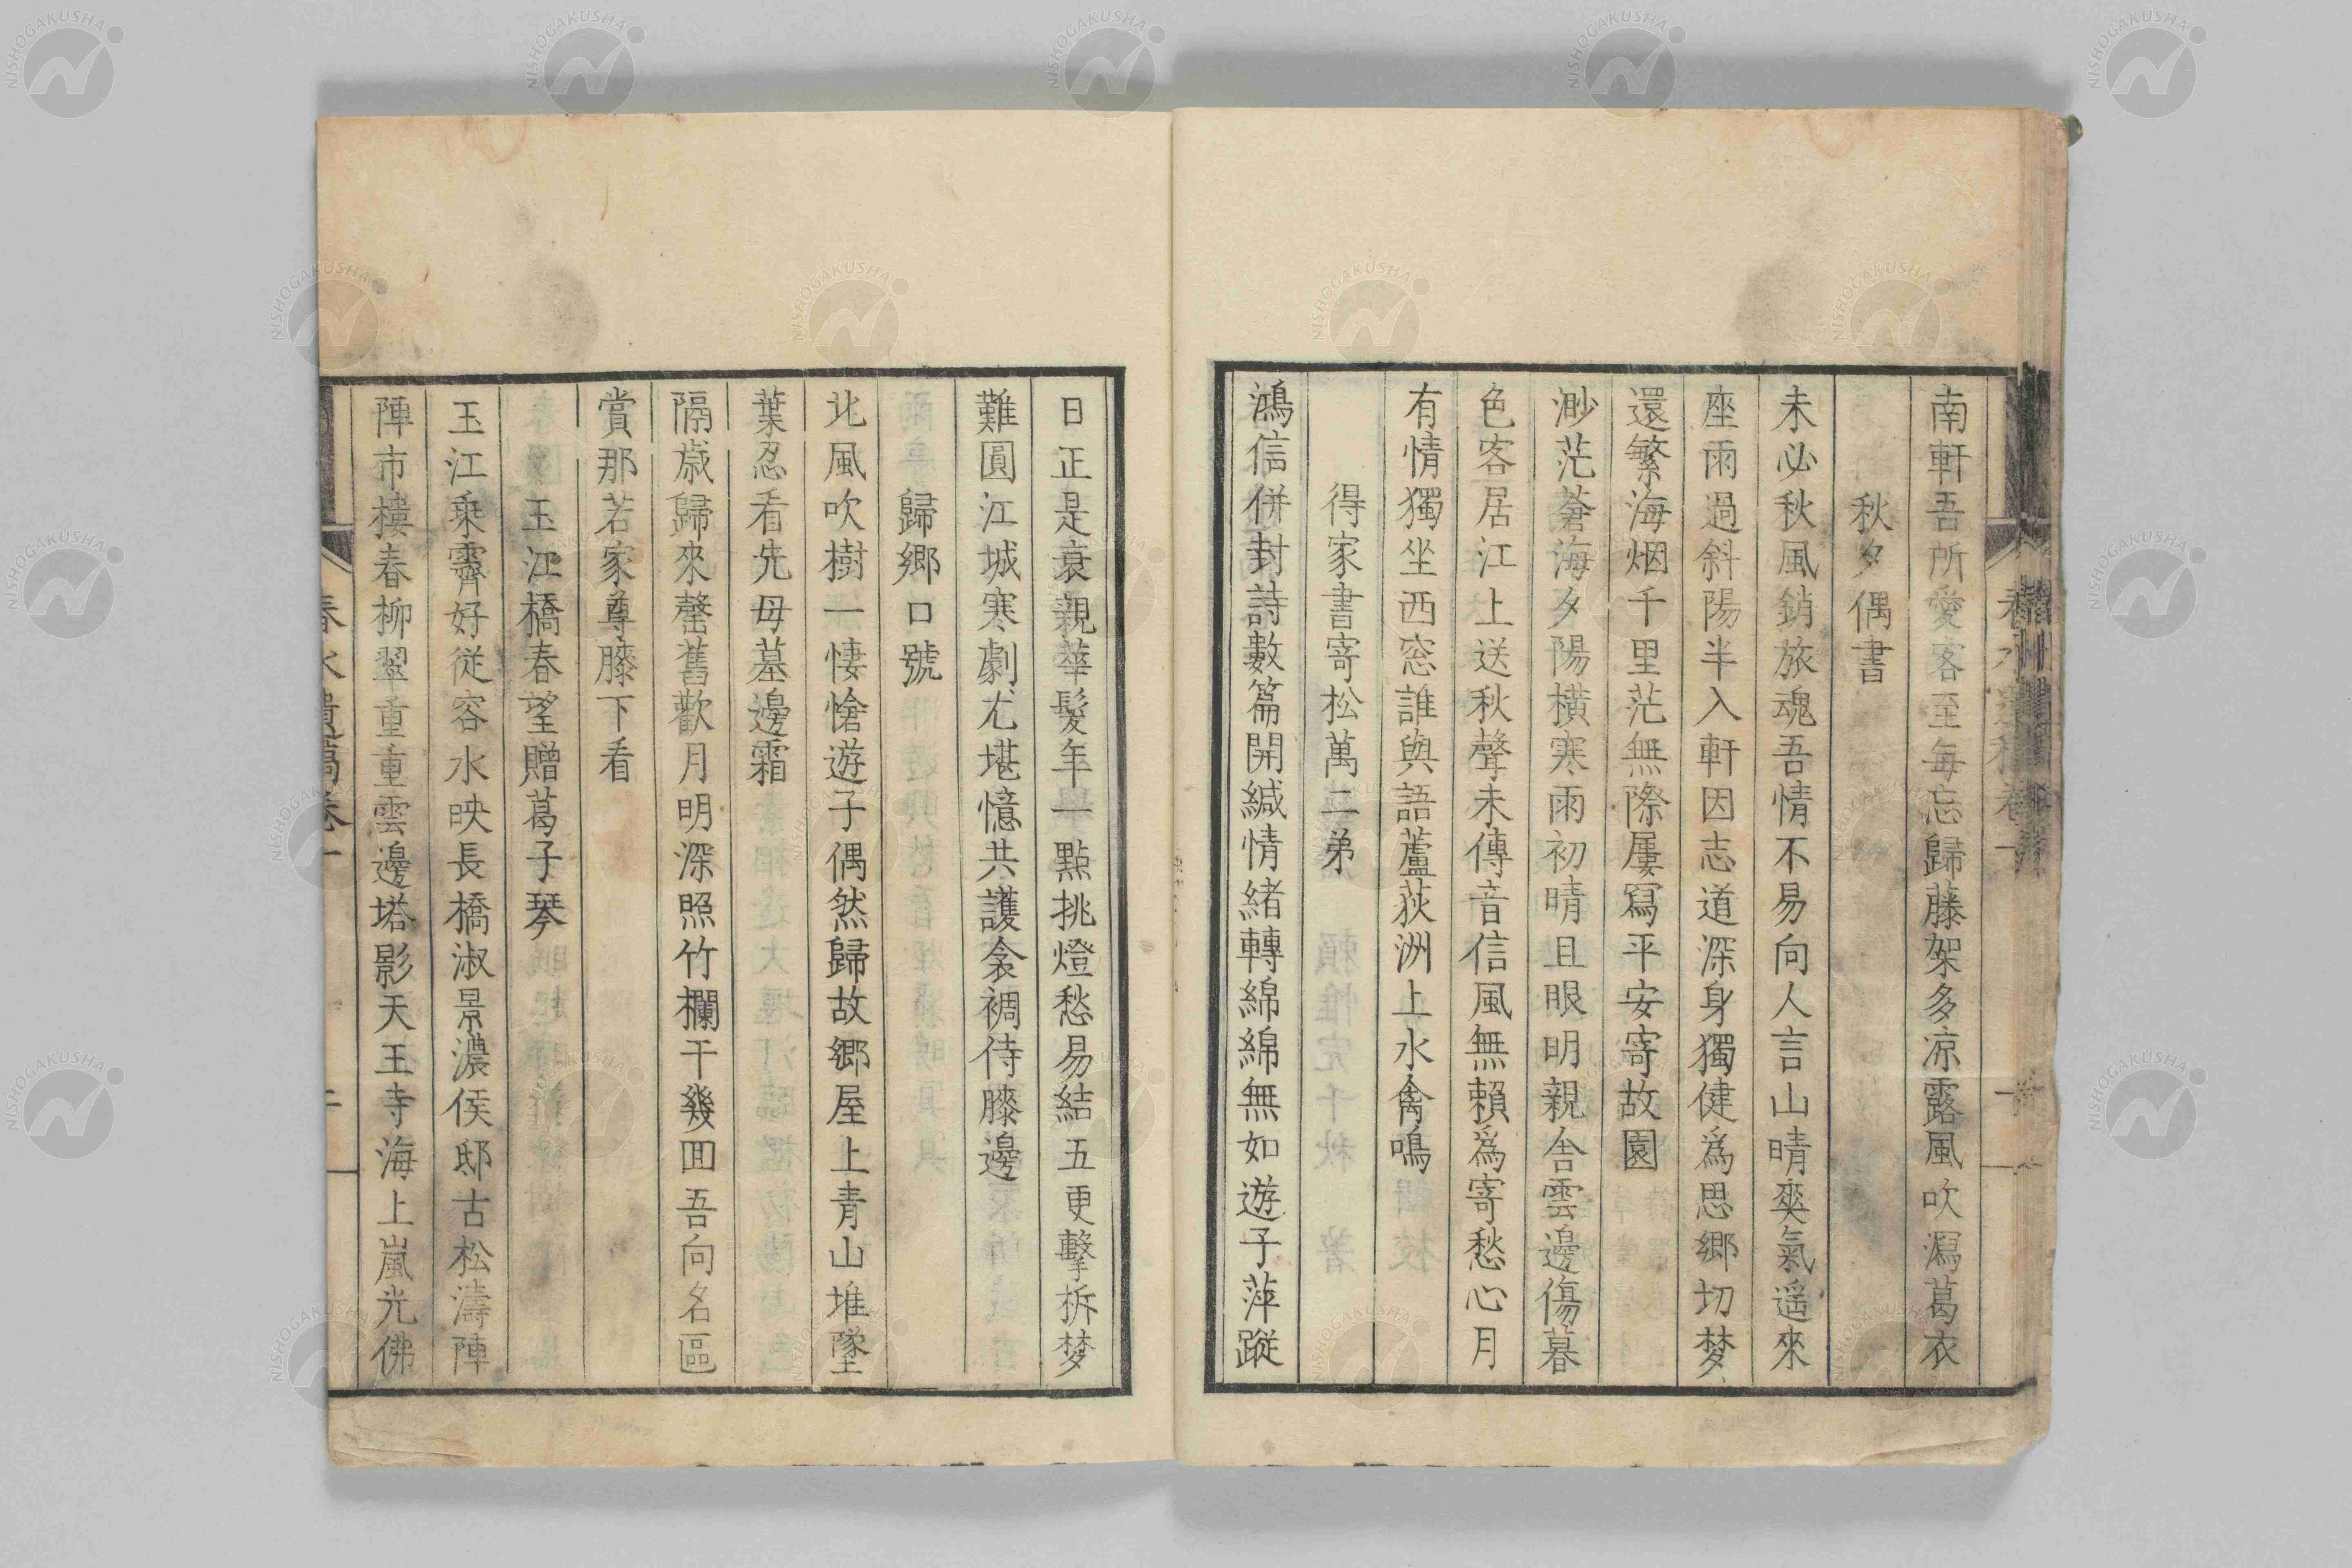 南軒吾所愛客至每忘歸藤架多凉露風吹瀉葛衣
秋夕偶書
未必秋風銷旅魂吾情不易向人言山晴爽氣遥來
座雨過斜陽半入軒因志道深身獨健爲思郷切梦
還繁海烟千里茫無際屢寫平安寄故園
渺茫蒼海夕陽橫寒雨初晴且眼明親舍雲邊傷暮
色客居江上送秋聲未傳音信風無賴爲寄愁心月
有情獨坐西窓誰與語蘆荻洲上水禽鳴
得家書寄松萬二弟
鴻信併封詩數篇開緘情緒轉綿綿無如遊子萍蹤
日正是衰親華髮年一點挑燈愁易結五更擊柝梦
難圓江城寒劇尤堪憶共護衾裯侍膝邊
歸郷口號
北風吹樹一悽愴遊子偶然歸故郷屋上青山堆墜
葉忍看先母墓邊霜
隔歳歸來罄舊歡月明深照竹欄干幾回吾向名區
賞那若家尊膝下看
玉江橋春望贈葛子琴
玉江乘霽好從容水映長橋淑景濃侯邸古松濤陣
陣市樓春柳翠重重雲邊塔影天王寺海上嵐光佛
春水遺稿卷一
NISHOGAKUSHA